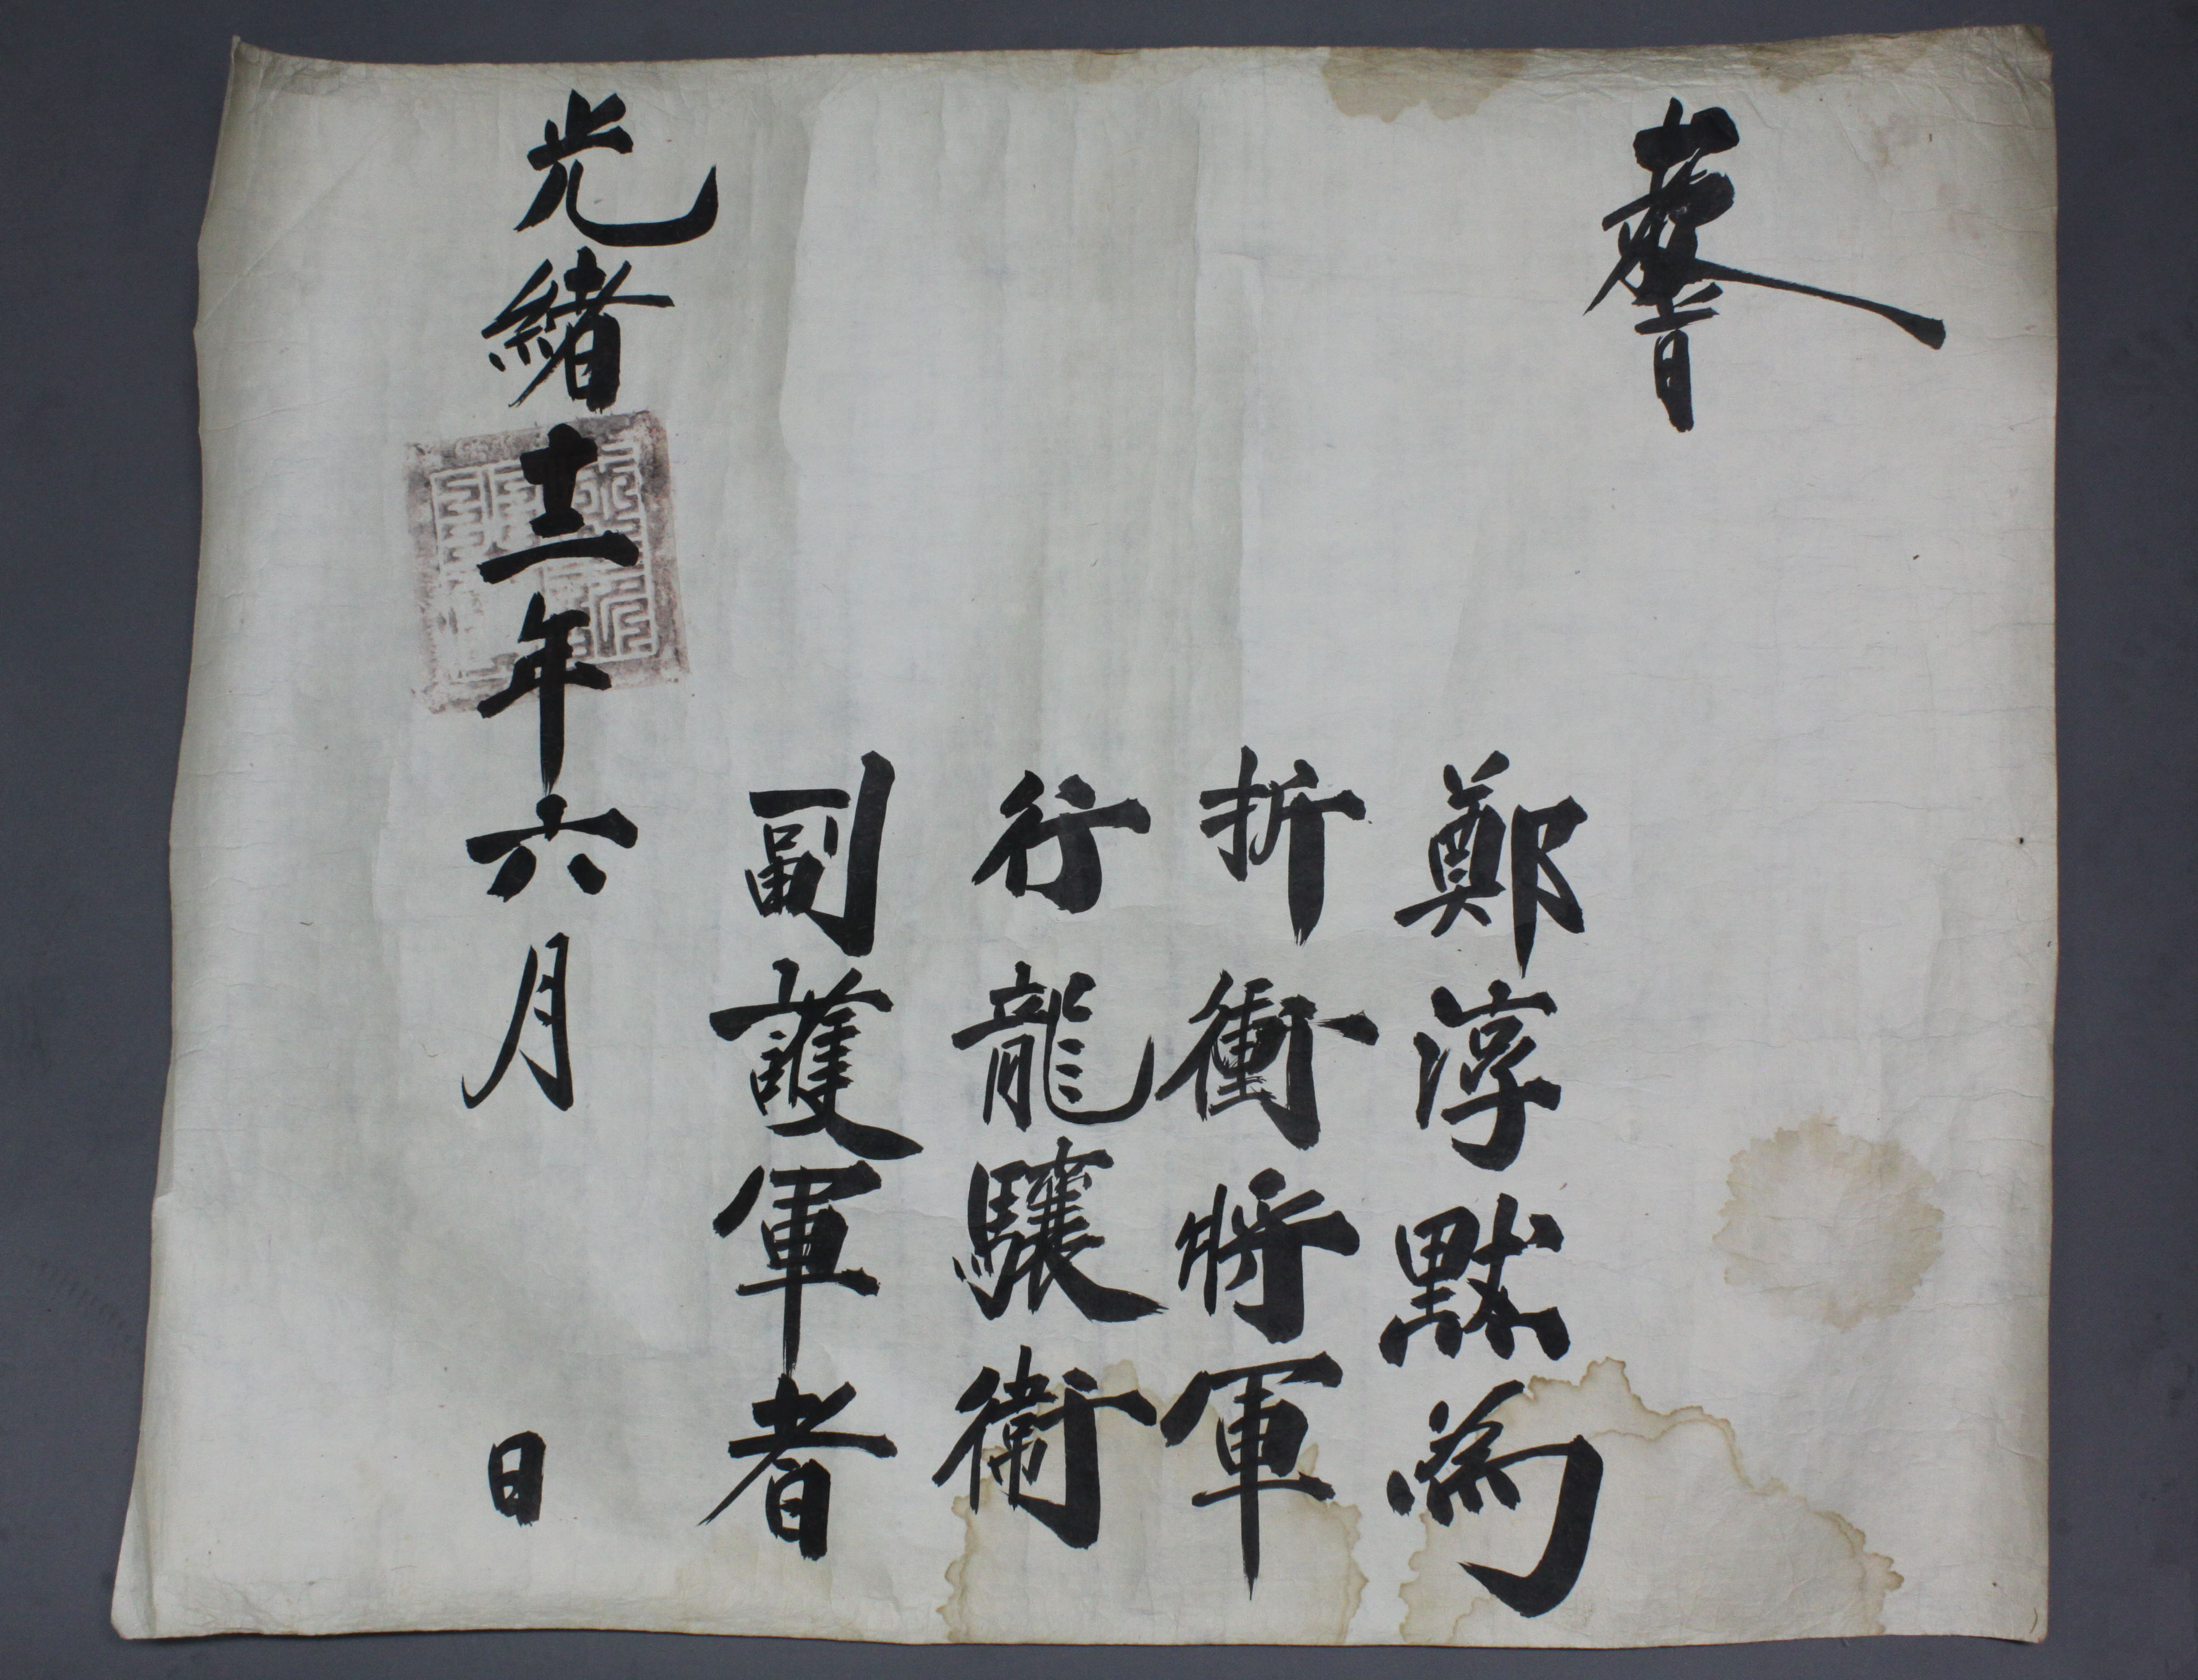 敎旨
鄭淳默為
折衝將軍
行龍驤衛
副護軍者
光緒十二年六月 日